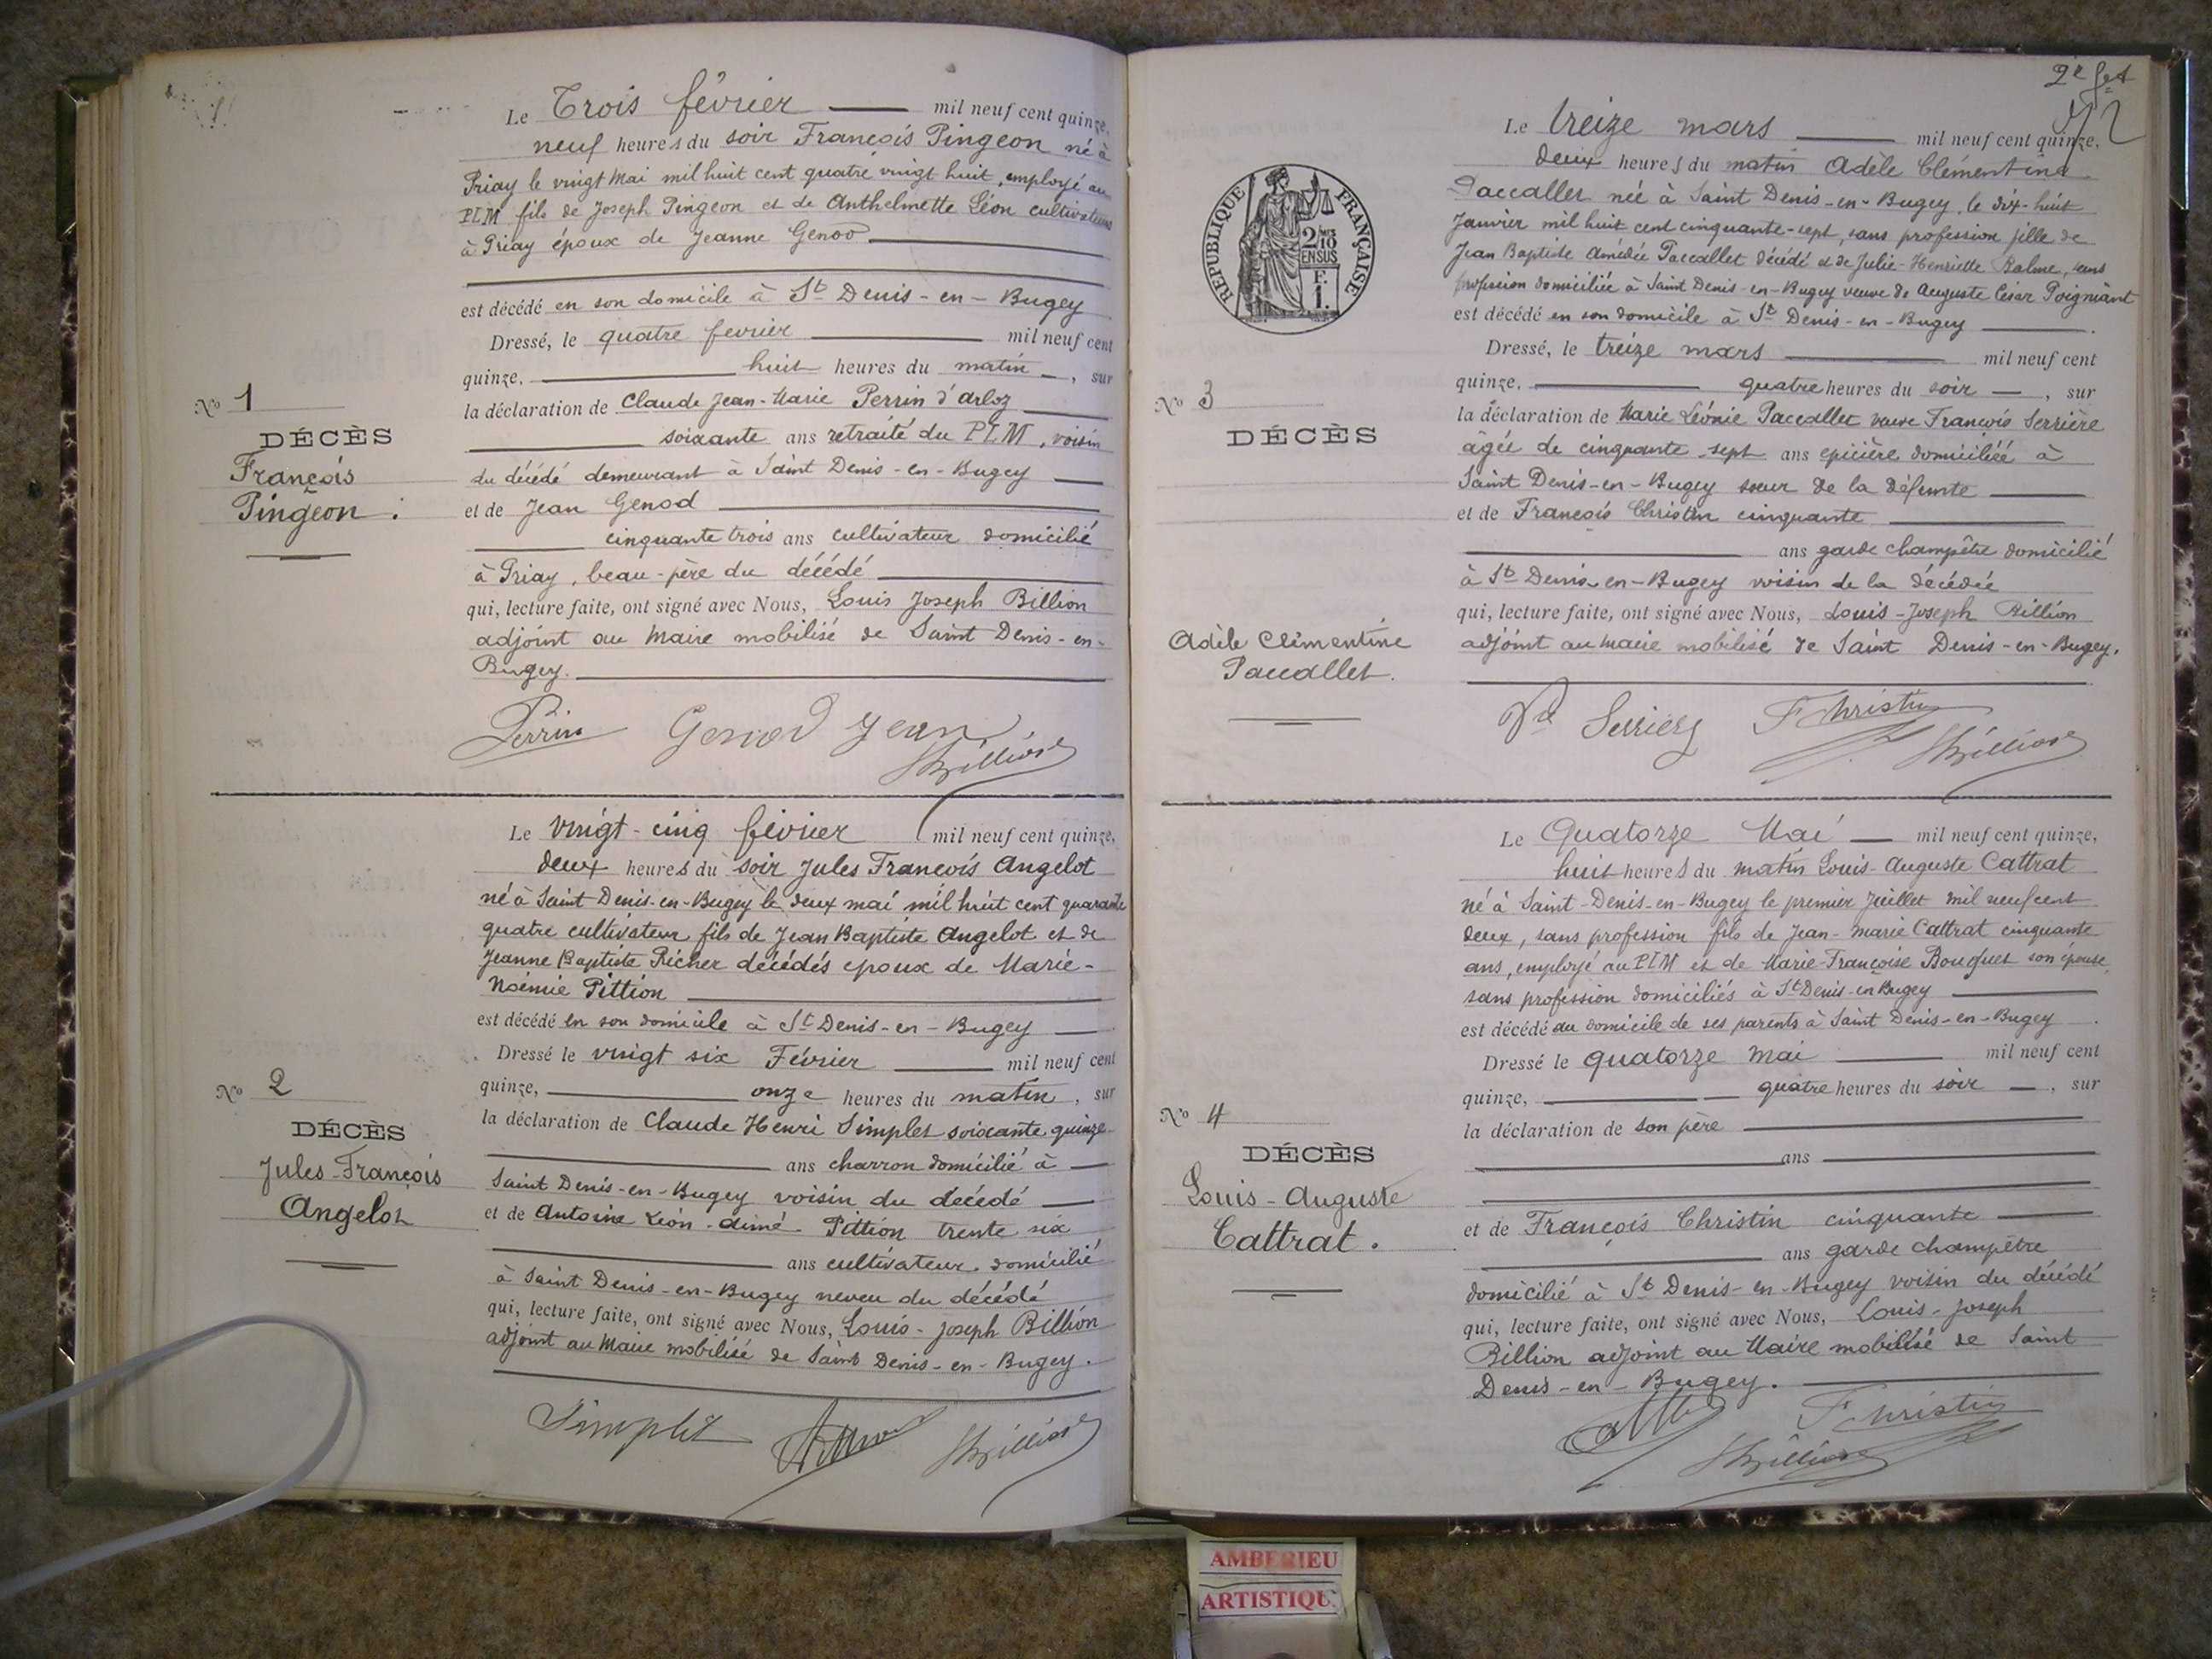 Le Trois février mil neuf cent quinze,
neuf heures du soir François Pingeon né à
Priay le vingt Mai mil huit cent quatre vingt huit, employé au
PLM fils de Joseph Pingeon et de Anthelmette Léon cultivateurs
à Priay époux de Jeanne Genod
est décédé en son domicile à St Denis-en-Bugey
Dressé, le quatre fevrier mil neuf cent
quinze, huit heures du matin, sur
la déclaration de Claude Jean-Marie Perrin d'arloz
soixante ans retraité du PLM, voisin
du décédé demeurant à Saint Denis-en-Bugey
et de Jean Genod
cinquante trois ans cultivateur domicilié
à Priay, beau-père du décédé
qui, lecture faite, ont signé avec Nous, Louis Joseph Billion
adjoint au Maire mobilisé de Saint Denis-en-
Bugey.
Perrin Genod Jean
Billion
No 1
DÉCÈS
François
Pingeon.
Le vingt-cinq février mil neuf cent quinze,
deux heures du soir Jules François Angelot
né à Saint Denis-en-Bugey le deux mai mil huit cent quarante
quatre cultivateur fils de Jean Baptiste Angelot et de
Jeanne Baptiste Richer décédés epoux de Marie-
Noémie Pittion
est décédé en son domicile à St Denis-en-Bugey
Dressé le vingt six Février mil neuf cent
quinze, onze heures du matin, sur
la déclaration de Claude Henri Simplet soixante quinze
ans charron domicilié à
Saint Denis-en-Bugey voisin du décédé
et de Antoine Léon-Aimé Pittion trente six
ans cultivateur domicilié
à Saint Denis-en-Bugey neveu du décédé
qui, lecture faite, ont signé avec Nous, Louis-Joseph Billion
adjoint au Maire mobilisé de Saint Denis-en-Bugey.
Simplet Billion
No 2
DÉCÈS
Jules-François
Angelot
2e
Le treize mars mil neuf cent quinze,
deux heures du matin Adèle Clémentine
Paccallet née à Saint Denis-en-Bugey, le dix-huit
Janvier mil huit cent cinquante-sept, sans profession fille de
Jean Baptiste Amédée Paccallet décédé et de Julie-Henriette Balme, sans
profession domiciliée à Saint Denis-en-Bugey veuve de Auguste César Poigniant
est décédé en son domicile à St Denis-en-Bugey.
Dressé, le treize mars mil neuf cent
quinze, quatre heures du soir, sur
la déclaration de Marie Léonie Paccallet veuve François Serrière
âgée de cinquante-sept ans epicière domiciliée à
Saint Denis-en-Bugey soeur de la défunte
et de François Christin cinquante
ans garde champêtre domicilié
à St Denis-en-Bugey voisin de la décédée
qui, lecture faite, ont signé avec Nous, Louis-Joseph Billion
adjoint au maire mobilisé de Saint Denis-en-Bugey.
Ve Serriere F Christin
Billion
REPUBLIQUE FRANÇAISE
2/10
EN SUS
F.
1.
No 3
DÉCÈS
Adèle Clémentine
Paccallet.
Le Quatorze Mai mil neuf cent quinze,
huit heures du matin Louis-Auguste Cattrat
né à Saint-Denis-en-Bugey le premier Juillet mil neuf cent
deux, sans profession fils de Jean-Marie Cattrat cinquante
ans, employé au PLM et de Marie-Françoise Bouquet son épouse,
sans profession domiciliés à St Denis-en-Bugey
est décédé au domicile de ses parents à Saint Denis-en-Bugey.
Dressé le quatorze mai mil neuf cent
quinze, quatre heures du soir, sur
la déclaration de son père
ans
et de François Christin cinquante
ans garde champêtre
domicilié à St Denis-en-Bugey voisin du décédé
qui, lecture faite, ont signé avec Nous, Louis-Joseph
Billion adjoint au Maire mobilisé de Saint
Denis-en-Bugey.
F Christin
Billion
No 4
DÉCÈS
Louis-Auguste
Cattrat.
AMBERIEU
ARTISTIQU